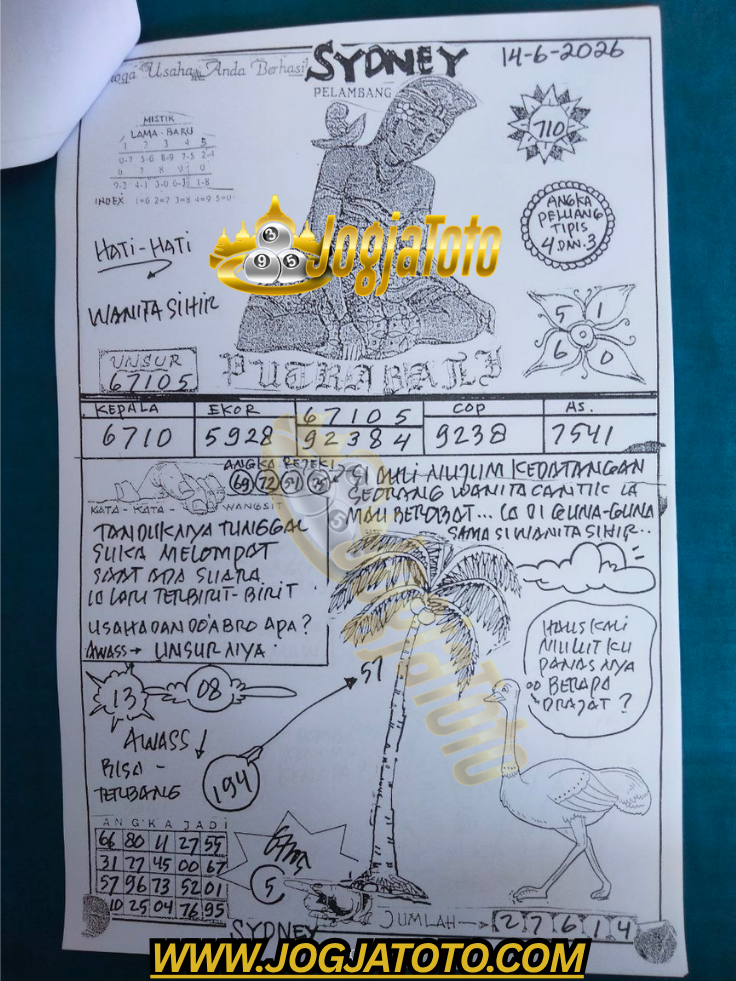 Usaha Anda Berhasil
SYDNEY
14-6-2026
PELAMBANG
MISTIK
LAMA - BARU
1 2 3 4 5
0-7 5-6 8-9 7-5 2-4
6 7 8 9 0
9-2 4-1 3-0 6-3 1-8
INDEX 1=6 2=7 3=8 4=9 5=0
710
ANGKA
PELUANG
TIPIS
4 DAN 3
JogjaToto
3
9 5
HATI-HATI
WANITA SIHIR
UNSUR
67105
5 1
6 0
PUTRA BALI
KEPALA EKOR 67105 COP AS.
6710 5928 92384 9238 7541
ANGKA REJEKI
69 72
KATA - KATA - WANGSIT
TANDUKNYA TUNGGAL
SUKA MELOMPAT
SAAT ADA SUARA
LARI TERBIRIT-BIRIT
USAHA DAN DO'A BRO APA?
AWASS → UNSURNYA.
KEDATANGAN
SEORANG WANITA CANTIK LA
MAU BEROBAT... LA DI GUNA-GUNA
SAMA SI WANITA SIHIR..
HAUS KALI
MULUTKU
PANASNYA
BERAPA
DRAJAT?
13
08
57
AWASS
BISA -
TERBANG
194
ANGKA JADI
66 80 11 27 55
31 77 45 00 67
57 96 73 52 01
10 25 04 76 95
5
SYDNEY
JUMLAH → 27614
JogjaToto
WWW.JOGJATOTO.COM